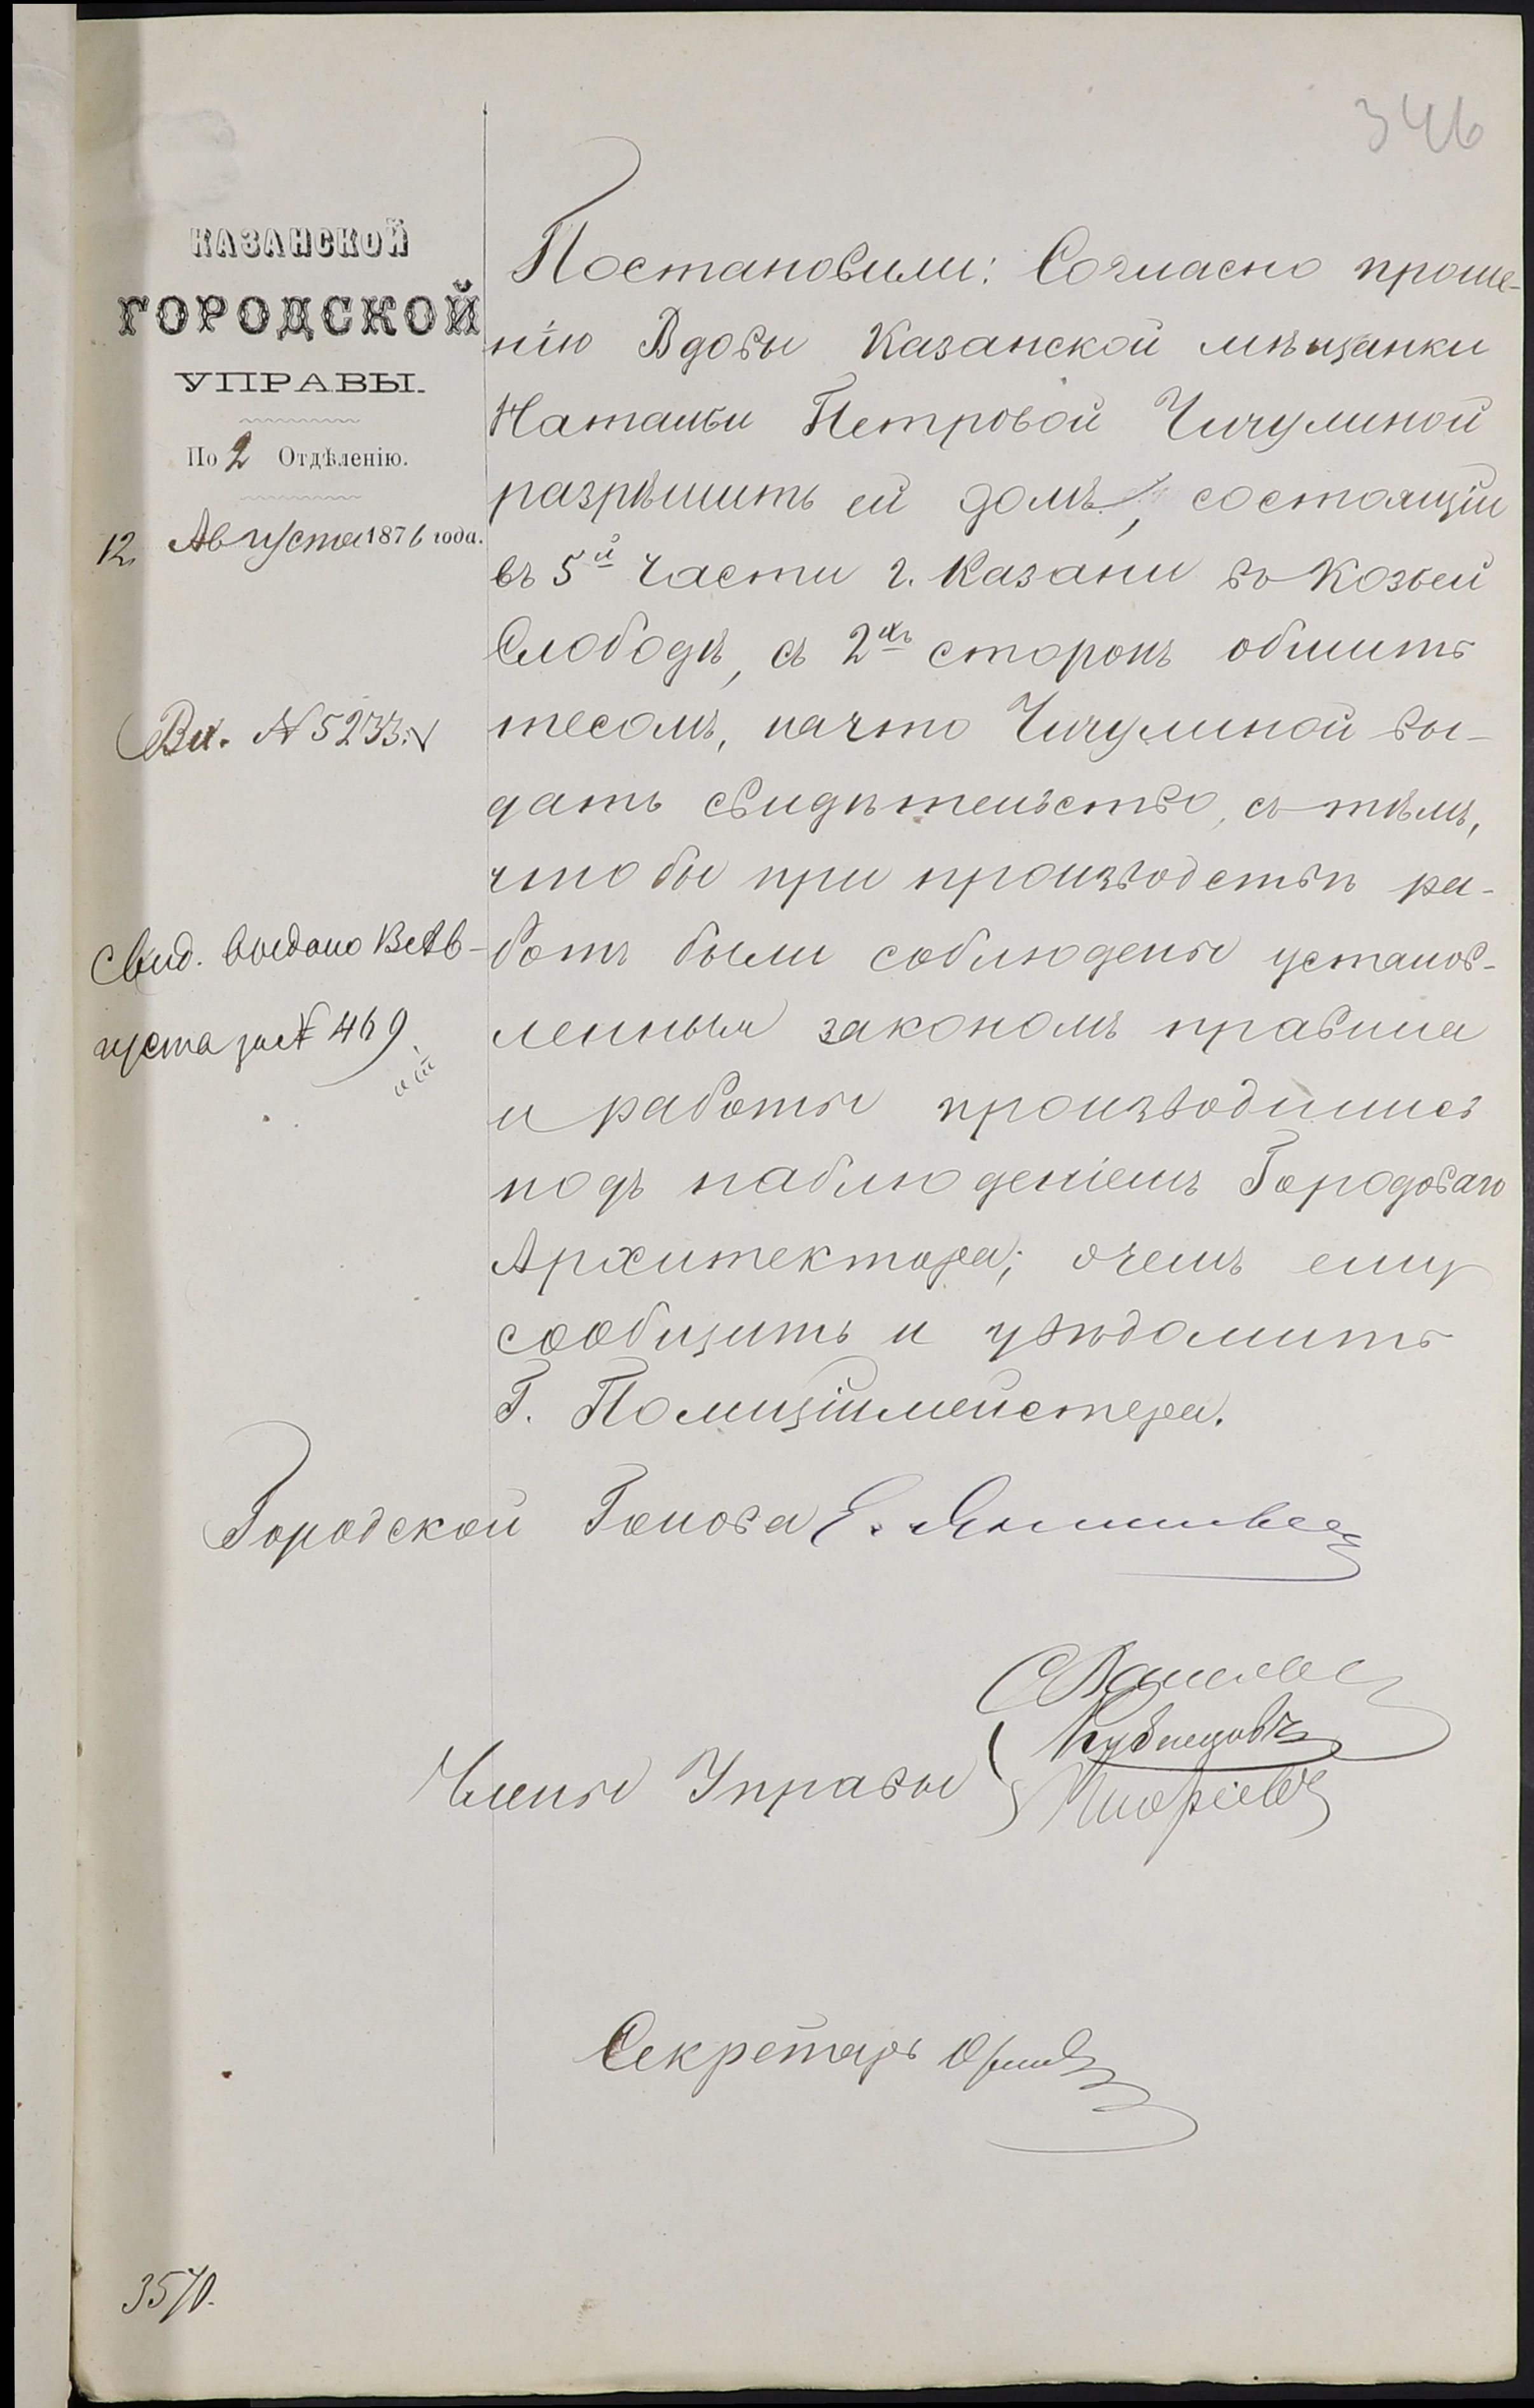 346
КАЗАНСКОЙ
ГОРОДСКОЙ
УПРАВЫ.
По 2 Отдѣленію.
12 Августа 1876 года.
Вх. № 5233.
Свид. выдано Авъ-
густа за № 469
Постановили: Согласно проше-
нію Вдовы Казанской мѣщанки
Натальи Петровой Чичулиной
разрѣшить ей домъ, состоящій
въ 5й части г. Казани въ Козьей
Слободѣ, съ 2хъ сторонъ обшить
тесомъ, начто Чичулиной вы-
дать свидѣтельство, съ тѣмъ,
что бы при производствѣ ра-
ботъ были соблюдены установ-
ленныя закономъ правила
и работы производились
подъ наблюденіемъ Городоваго
Архитектора; очемъ ему
сообщить и увѣдомить
Г. Полиціймейстера.
Городской Голова
Члены Управы
Кузнецовъ
Секретарь
3570.